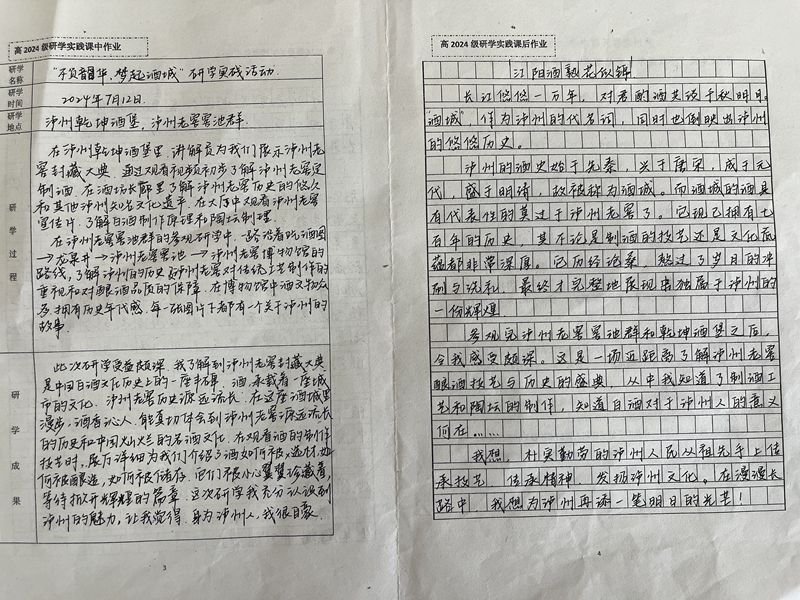 高 2024 级研学实践课中作业
研学名称
"不负韶华，梦起酒城"研学实践活动
研学时间
2024年7月12日.
研学地点
泸州乾坤酒堡，泸州老窖窖池群.
研学过程
在泸州乾坤酒堡里，讲解员为我们展示泸州老
窖封藏大典，通过观看视频初步了解泸州老窖定
制酒. 在酒坊长廊里了解泸州老窖历史的悠久
和其他泸州知名文化遗产. 在大厅中观看泸州老窖
宣传片，了解白酒制作原理和陶坛制理.
在泸州老窖窖池群的参观研学中，一路沿着
→龙泉井→泸州老窖窖池→泸州老窖博物馆的
路线，了解泸州的历史和泸州老窖对传统工艺制作的
重视和对酿酒品质的保障. 在博物馆中酒文物众
多，拥有历史年代感. 每一张图片下都有一个关于泸州的
故事.
研学成果
此次研学受益颇深. 我了解到泸州老窖封藏大典
是中国白酒文化历史上的一座丰碑. 酒，承载着一座城
市的文化. 泸州老窖历史源远流长. 在这座酒城里
漫步，酒香沁人. 能真切体会到泸州老窖源远流长
的历史和中国灿烂的名酒文化. 在观看酒的制作
技艺时，展厅详细为我们介绍了酒如何被选材，如
何被酿造，如何被储存. 它们被小心翼翼珍藏着，
等待掀开辉煌的篇章. 这次研学我充分认识到
泸州的魅力，让我觉得，身为泸州人，我很自豪.
3
高 2024 级研学实践课后作业
江阳酒熟花似锦
长江悠悠一万年，对君酌酒共谈千秋明月.
"酒城"，作为泸州的代名词，同时也倒映出泸州
的悠悠历史。
泸州的酒史始于先秦，兴于唐宋，成于元
代，盛于明清，故被称为酒城。而酒城的酒具
有代表性的莫过于泸州老窖了。它现已拥有七
百年的历史，其不论是制酒的技艺还是文化底
蕴都非常深厚。它历经沧桑，熬过了岁月的冲
刷与洗礼，最终才完整地展现出独属于泸州的
一份辉煌.
参观完泸州老窖窖池群和乾坤酒堡之后，
令我感受颇深。这是一场近距离了解泸州老窖
酿酒技艺与历史的盛典，从中我知道了制酒工
艺和陶坛的制作，知道白酒对于泸州人的意义
何在……
我想，朴实勤劳的泸州人民从祖先手上传
承技艺，传承精神，发扬泸州文化。在漫漫长
路中，我想为泸州再添一笔明日的光芒！
4